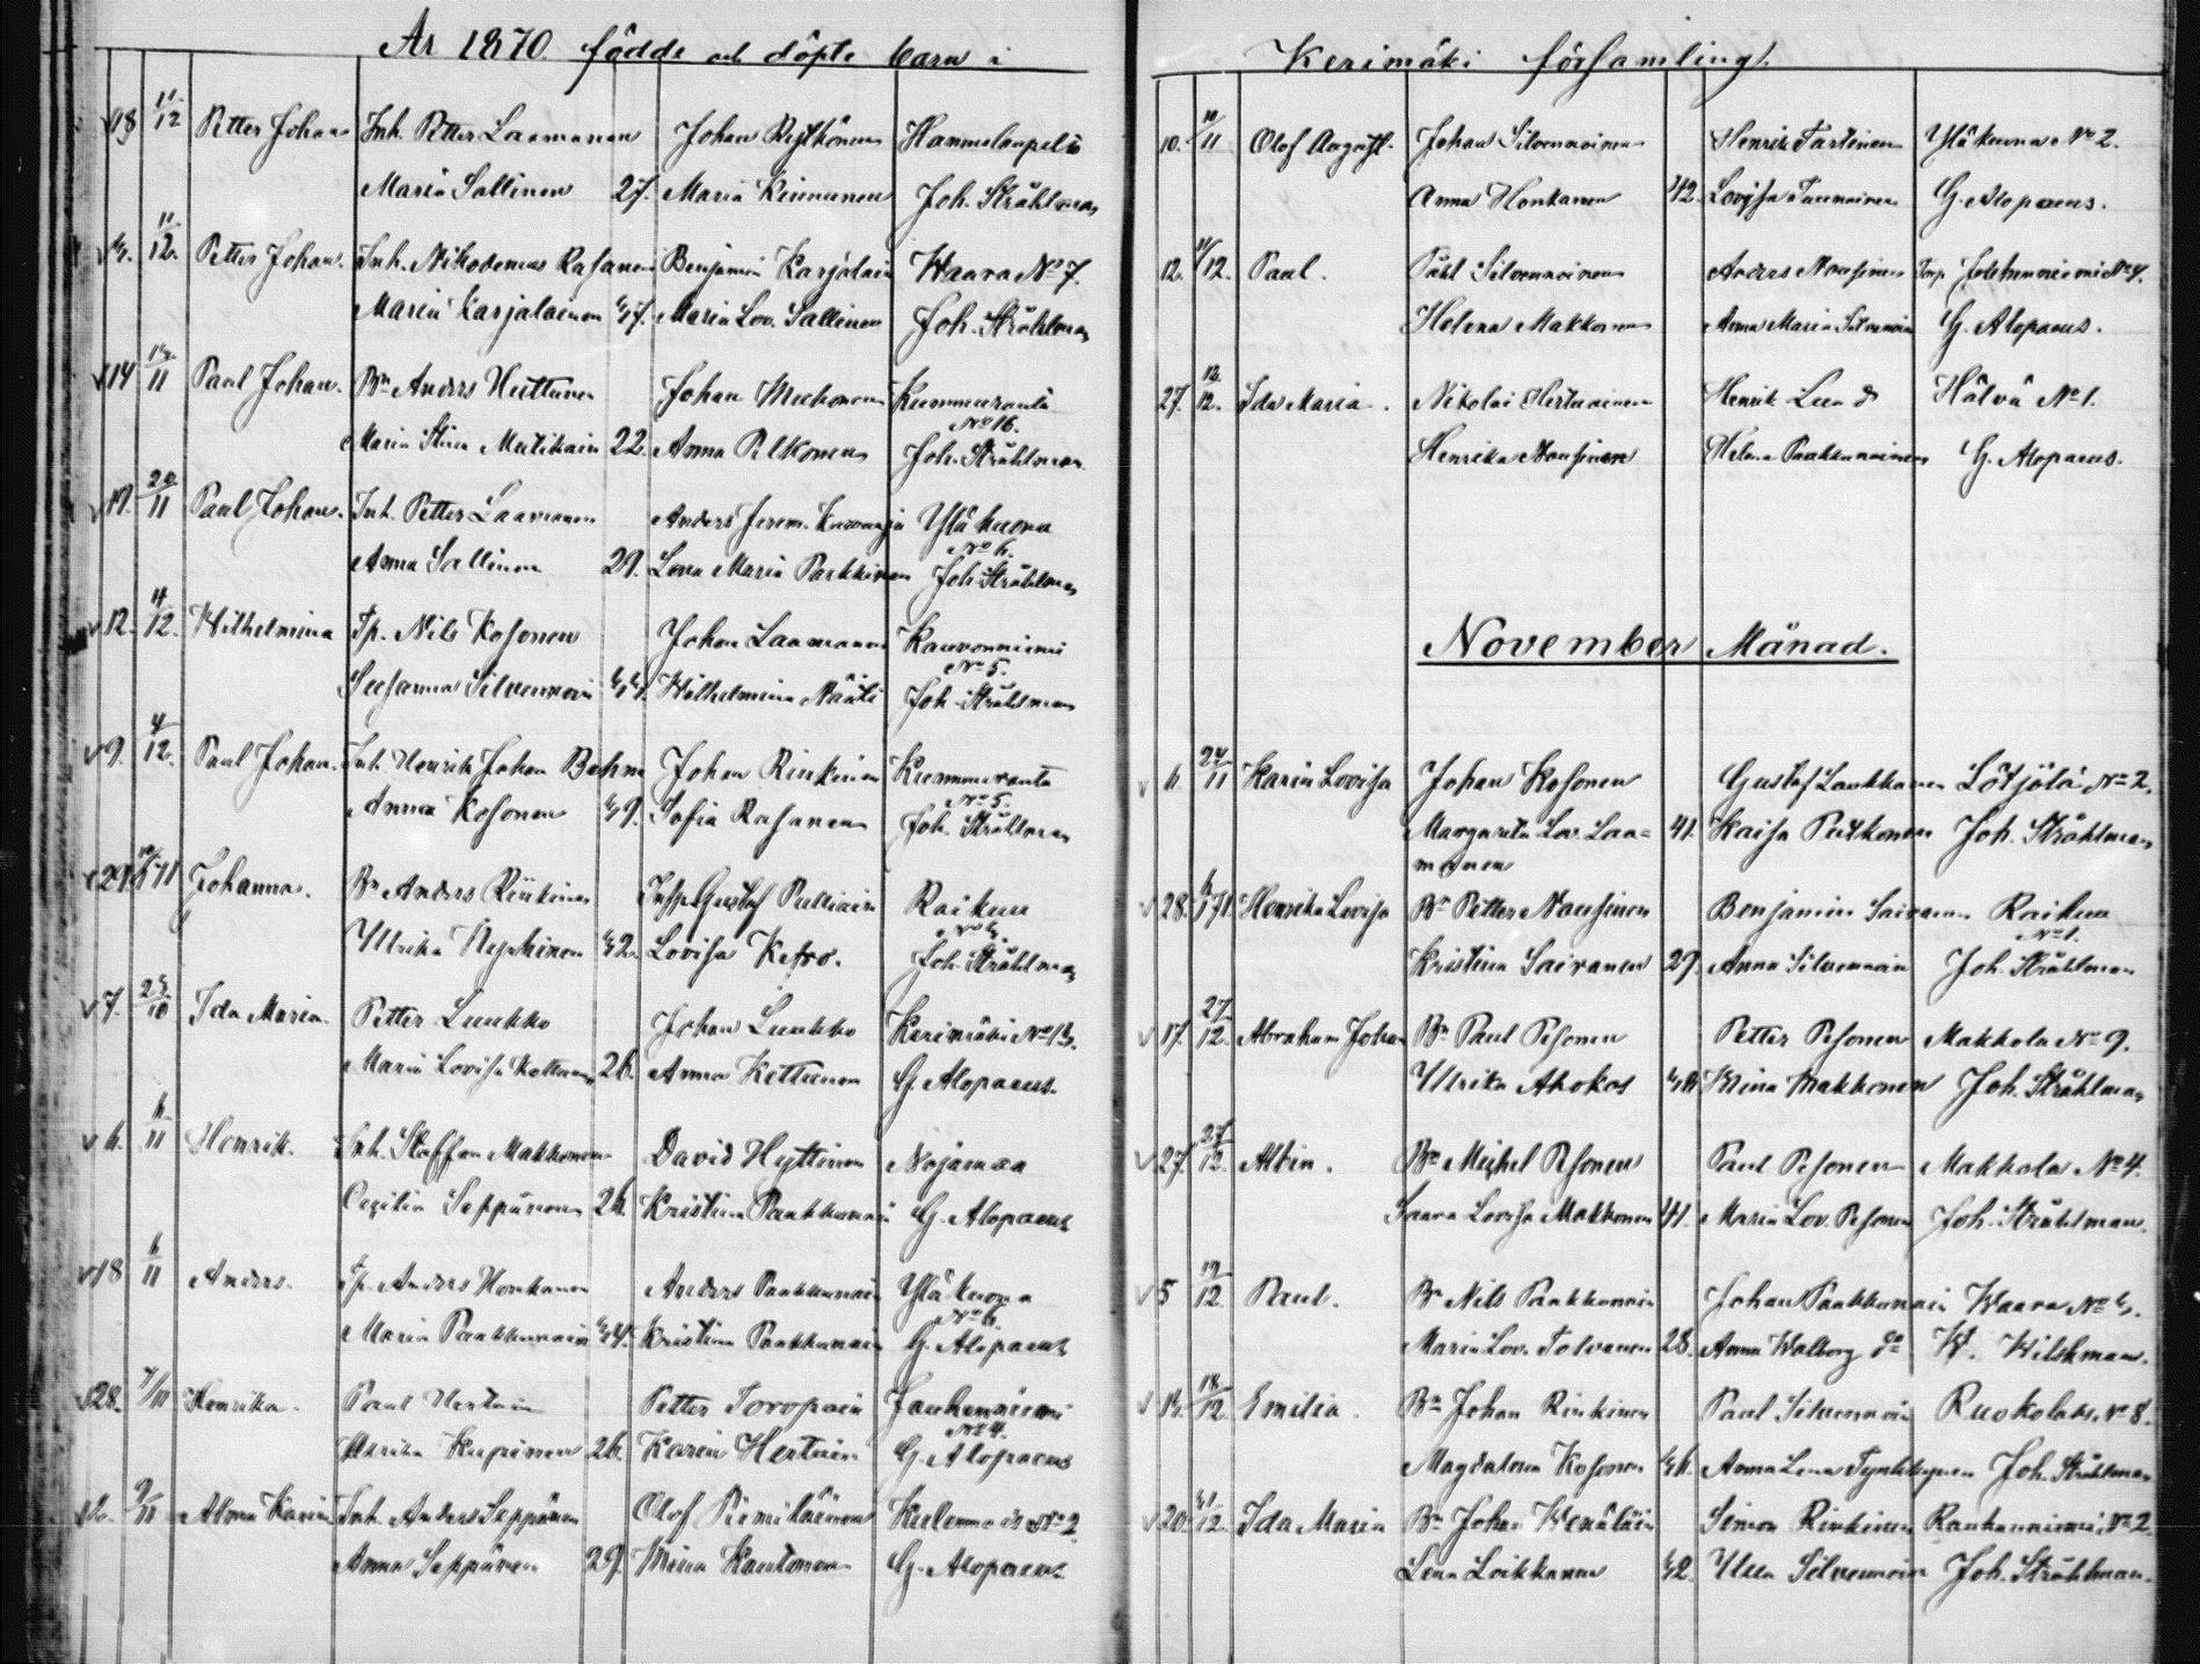 År 1870 födde och döpte barn i
18 11/12 Petter Johan Inh. Petter Laamanen Johan Hammelanpelto
Maria Sallinen 27. Maria Kinnunen Joh. Stråhlman
11/12. Petter Johan. Inh. Nikodemus Rasanen Benjamin Karjalain Waara No 7.
Maria Karjalainen 37. Maria Lov. Sallinen Joh. Stråhlman
14 11 Paul Johan. Bn Anders Huttunen Johan Muhonen Kummuranta
No 16.
Maria Stina Mutikain 22. Anna Pelkonen Joh. Stråhlman
19. 20/11 Paul Johan. Inh. Petter Laamanen Anders Yläkuona
No 6.
Anna Sallinen 29. Lena Maria Parkkinen Joh. Stråhlman
12. 4/12. Wilhelmina Tp. Nils Kosonen Johan Laamanen Rauvonniemi
No 5.
Susanna Silvennoin 33. Wilhelmina Joh. Stråhlman
9. 4/12. Paul Johan. Inh. Henrik Johan Behm Johan Rinkinen Kummuranta
No 5.
Anna Kosonen 39. Sofia Rasanen Joh. Stråhlman
29. Johanna. Bn Anders Rinkinen Gustaf Pulliain Raikuu
No 3.
Ulrika 32. Lovisa Ketvo. Joh. Stråhlman
7. 23/10 Ida Maria. Petter Luukko Johan Luukko Kerimäki No 13.
Maria Lovisa 26. Anna Kettunen G. Alopaeus.
6. 6/11 Henrik. Inh. Staffan Makkonen David Hyttinen Nojamaa
Cecilia Seppänen 26. Kristina Paakkunain G. Alopaeus
18 6/11 Anders. Tp. Anders Honkanen Anders Paakkunain Yläkuona
No 6.
Maria Paakkunain 34. Kristina Paakkunain G. Alopaeus
28. 7/11 Henrika. Paul Hertuin Petter Toropain Jouhenniemi
No 4.
Ulrika Kupinen 26. Karin Hertuin G. Alopaeus
2. 9/11 Alma Karin Inh. Anders Seppänen Olof Kulenno No 2
Anna Seppänen 29. Mina Kautonen G. Alopaeus
Kerimäki församling.
10. 11 Olof August. Johan Silvennoinen Henrik Tartinen Yläkuona No 2.
Anna Honkanen 42. Lovisa G. Alopaeus.
12. 11/12. Paul. Påhl Silvennoinen Anders Nousinen No 4.
Helena Makkonen Anna Maria Silvennoin G. Alopaeus.
27. 12/12. Ida Maria. Nikolai Hertuainen Henrik Lund Hälvä No 1.
Henrika Nousinen Helena Paakkunainen G. Alopaeus.
November Månad.
6 24/11 Karin Lovisa Johan Kosonen Gustaf Laukkanen Lötjölä No 2.
Margareta Lov. Laa= 41. Kaisa Pulkkonen Joh. Stråhlman
manen
28. 6/1 71 Henrika Lovisa Bn Petter Nousinen Benjamin Sairanen Raikuu
No 1.
Kristina Sairanen 29. Anna Silvennoin Joh. Stråhlman
17. 27/12. Abraham Johan Bn Paul Pesonen Petter Pesonen Makkola No 9.
Ulrika Ahokas Mina Makkonen Joh. Stråhlman
27. 27/12. Albin. Bn Michel Pesonen Paul Pesonen Makkola No 4.
Saara Lovisa Makkonen 41. Maria Lov. Pesonen Joh. Stråhlman.
5 19/12 Paul. Bn Nils Paakkunain Johan Paakkunain Waara No 3.
Maria Lov. Tolvanen 28. Anna Walborg do W. Wilskman.
13. 18/12 Emilia. Bn Johan Rinkinen Paul Silvennoin Ruokolaks. No 8.
Magdalena Kosonen 36. Anna Lena Joh. Stråhlman
20. 31/12. Ida Maria Bn Johan Wenäläin Simon Rinkinen Rauhanniemi No 2
Lena Loikkanen 32. Ulla Silvennoin Joh. Stråhlman.